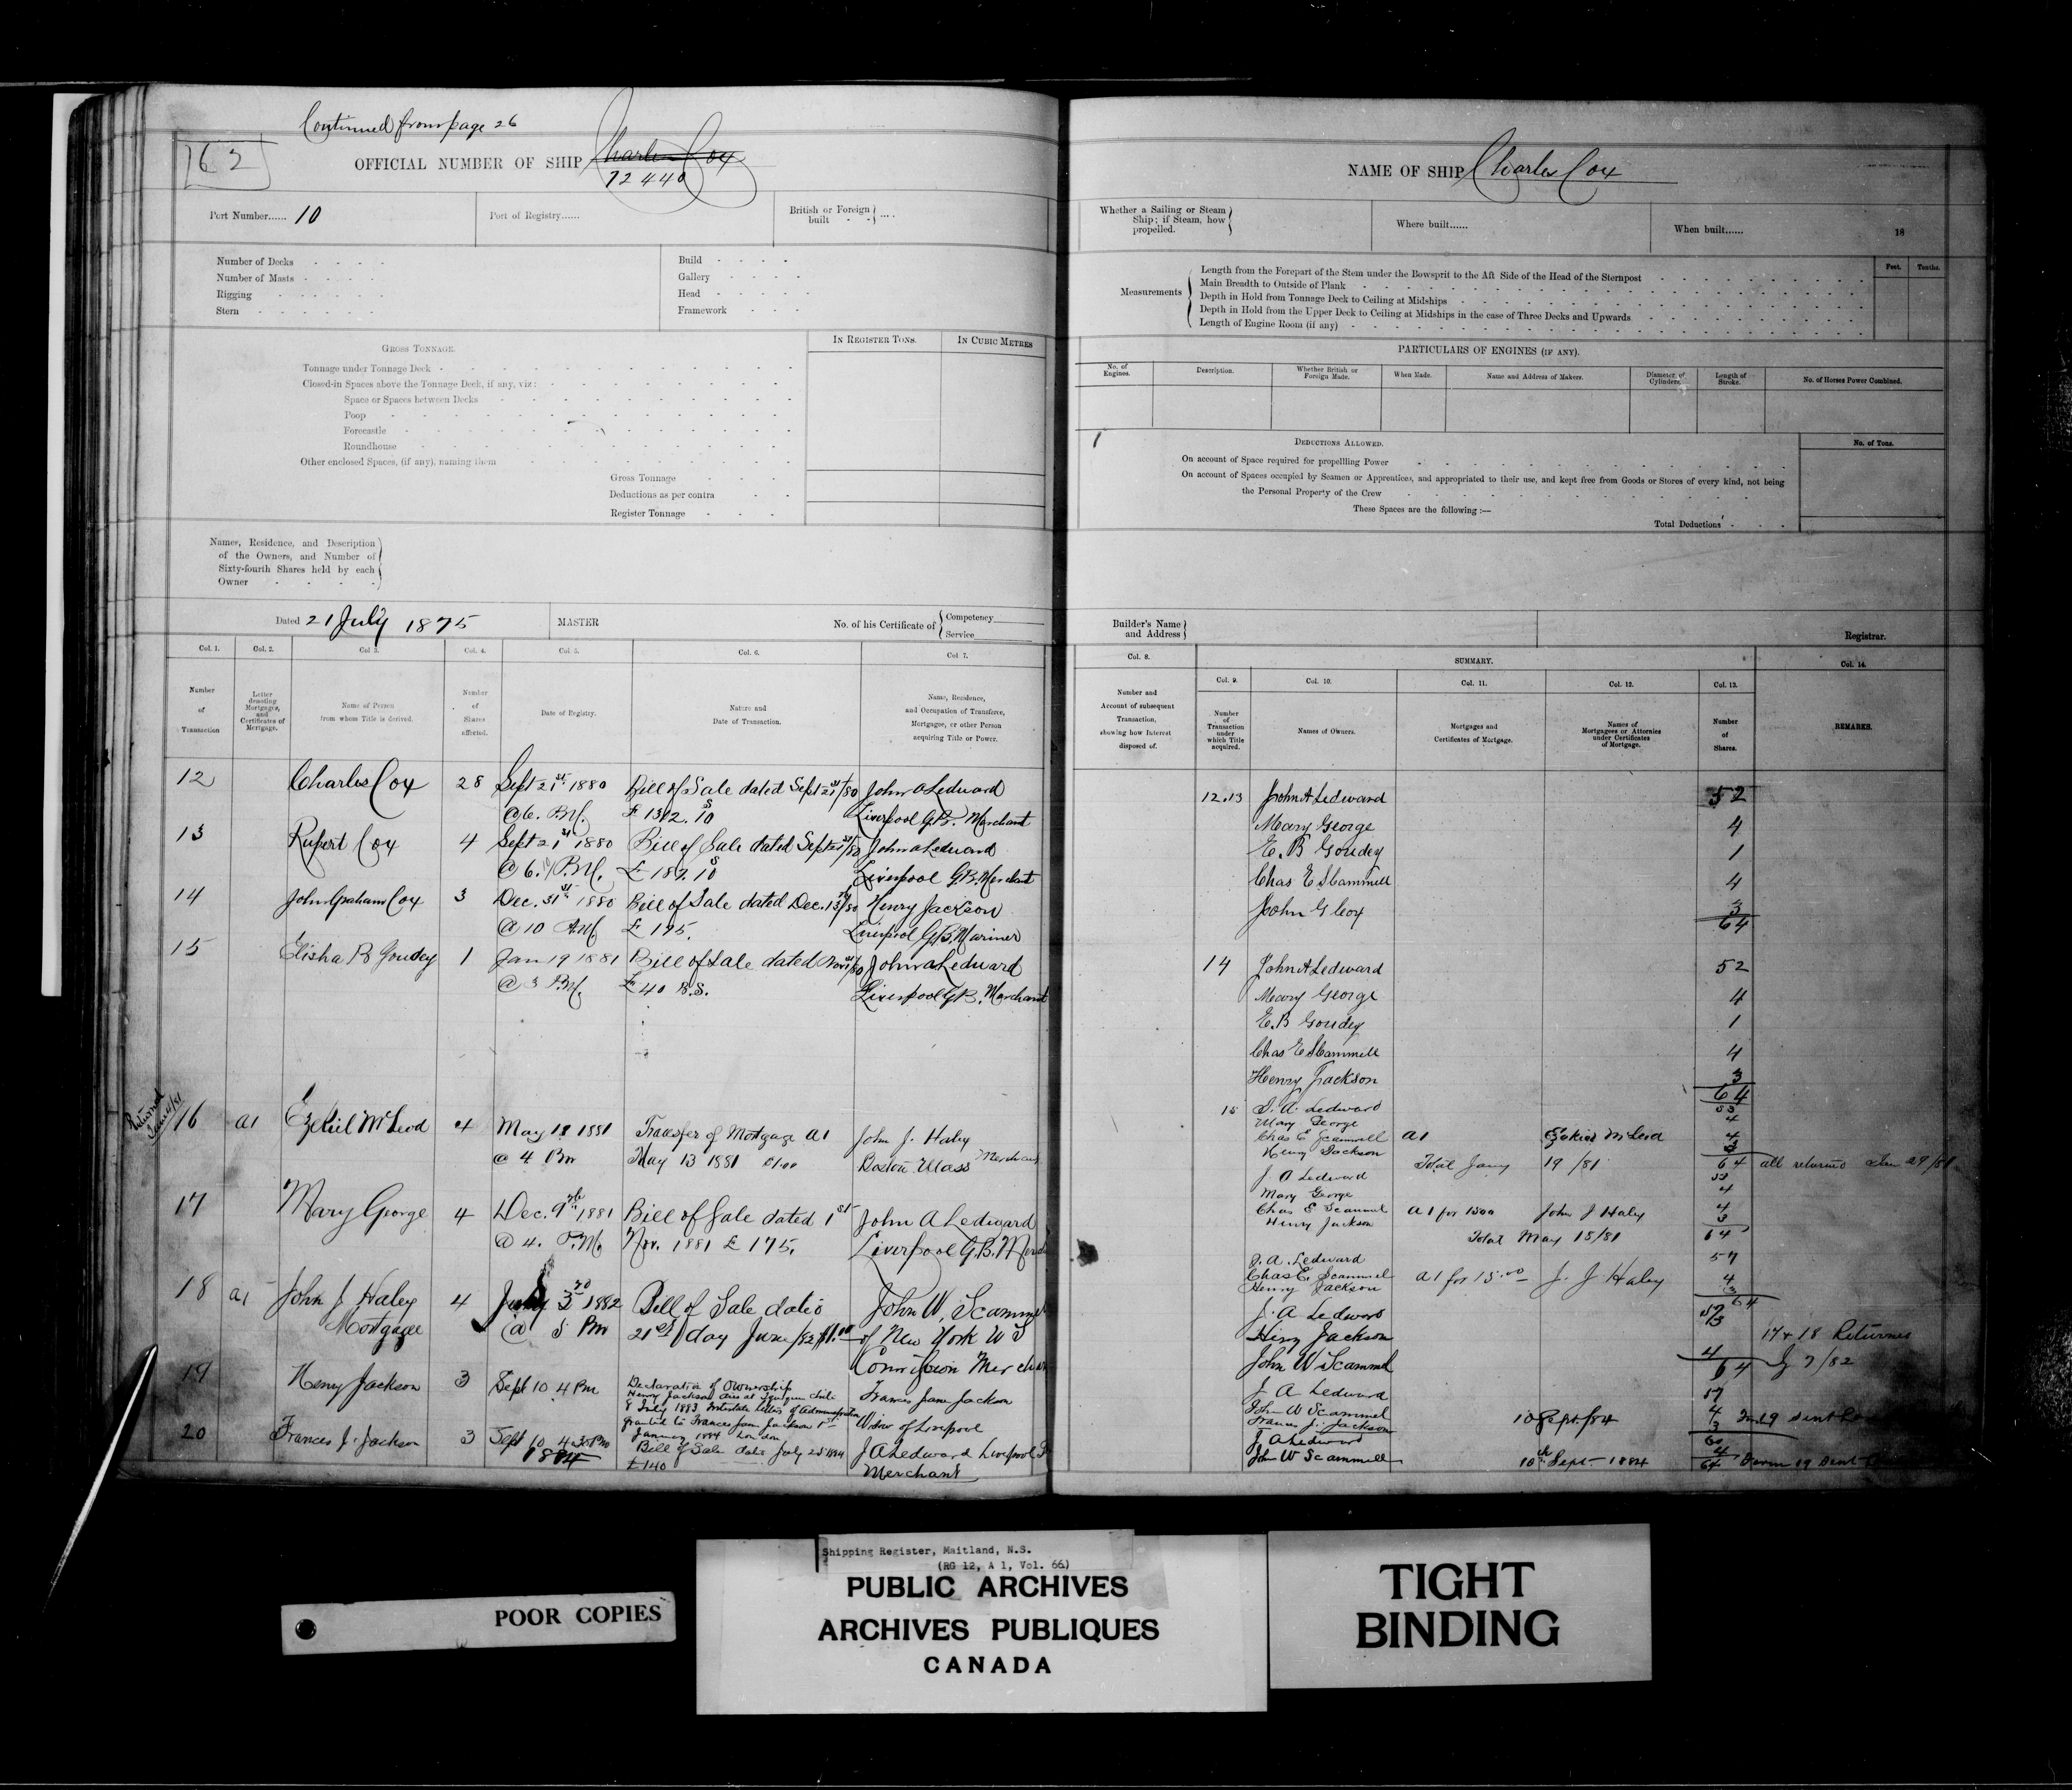 Continued from page 26
162
OFFICIAL NUMBER OF SHIP Charles Cox
72440
Port Number...... 10
Port of Registry......
British or Foreign built - - ....
Number of Decks
Number of Masts
Rigging
Stern
Build
Gallery
Head
Framework
GROSS TONNAGE.
IN REGISTER TONS.
IN CUBIC METRES
Tonnage under Tonnage Deck
Closed-in Spaces above the Tonnage Deck, if any, viz:
Space or Spaces between Decks
Poop
Forecastle
Roundhouse
Other enclosed Spaces, (if any), naming them
Gross Tonnage
Deductions as per contra
Register Tonnage
Names, Residence, and Description
of the Owners, and Number of
Sixty-fourth Shares held by each
Owner
Dated 21 July 1875
MASTER
No. of his Certificate of
Competency
Service
Col. 1.
Col. 2.
Col 3.
Col. 4.
Col. 5.
Col. 6.
Col 7.
Number of Transaction
Letter denoting Mortgages, and Certificates of Mortgage.
Name of Person from whom Title is derived.
Number of Shares affected.
Date of Registry.
Nature and Date of Transaction.
Name, Residence, and Occupation of Transferee, Mortgagee, or other Person acquiring Title or Power.
12 Charles Cox 28 Sept 21st 1880 Bill of Sale dated Sept 21st/80 John A Ledward
@ 6. P.M. £ 1312. 10s Liverpool G.B. Merchant
13 Rupert Cox 4 Sept 21st 1880 Bill of Sale dated Sept 21st/80 John A Ledward
@ 6. P.M. £ 187. 10s Liverpool G.B. Merchant
14 John Graham Cox 3 Dec. 31st 1880 Bill of Sale dated Dec. 13th/80 Henry Jackson
@ 10 A.M. £ 175. Liverpool G.B. Mariner
15 Elisha B Goudey 1 Jan 19 1881 Bill of Sale dated Nov /80 John A Ledward
@ 3 P.M. £40 B.S. Liverpool G.B. Merchant
Returned
16 a1 Ezekiel McLeod 4 May 18 1881 Transfer of Mortgage a1 John J. Haley
@ 4 Pm May 13 1881 Boston Mass Merchant
17 Mary George 4 Dec. 9th 1881 Bill of Sale dated 1st John A Ledward
@ 4. P.M. Nov. 1881 £ 175. Liverpool G.B.
18 a1 John J Haley 4 July 3 1882 Bill of Sale dated John W. Scammel
Mortgagee @ 5 Pm 21st day June/82 $1.00 of New York
Commission Merchant
19 Henry Jackson 3 Sept 10 4 Pm Declaration of Ownership Frances Jane Jackson
Henry Jackson died at
8 July 1883 Intestate letters of administration Widow of Liverpool
granted to Frances Jane Jackson
January 1884 London
20 Frances J. Jackson 3 Sept 10 4.30 Pm Bill of Sale date July 1884 J A Ledward Liverpool
1884 £140 Merchant
NAME OF SHIP Charles Cox
Whether a Sailing or Steam Ship; if Steam, how propelled.
Where built......
When built...... 18
Measurements
Feet. Tenths.
Length from the Forepart of the Stem under the Bowsprit to the Aft Side of the Head of the Sternpost
Main Breadth to Outside of Plank
Depth in Hold from Tonnage Deck to Ceiling at Midships
Depth in Hold from the Upper Deck to Ceiling at Midships in the case of Three Decks and Upwards
Length of Engine Room (if any)
PARTICULARS OF ENGINES (IF ANY).
No. of Engines.
Description.
Whether British or Foreign Made.
When Made.
Name and Address of Makers.
Diameter of Cylinders.
Length of Stroke.
No. of Horses Power Combined.
DEDUCTIONS ALLOWED.
No. of Tons.
On account of Space required for propellling Power
On account of Spaces occupied by Seamen or Apprentices, and appropriated to their use, and kept free from Goods or Stores of every kind, not being
the Personal Property of the Crew
These Spaces are the following :—
Total Deductions
Builder's Name and Address
Registrar.
Col. 8.
SUMMARY.
Col. 14.
Col. 9.
Col. 10.
Col. 11.
Col. 12.
Col. 13.
Number and Account of subsequent Transaction, showing how Interest disposed of.
Number of Transaction under which Title acquired.
Names of Owners.
Mortgages and Certificates of Mortgage.
Names of Mortgagees or Attornies under Certificates of Mortgage.
Number of Shares.
REMARKS.
12.13 John A Ledward 52
Mary George 4
E. B Goudey 1
Chas E Scammell 4
John G Cox 3
64
14 John A Ledward 52
Mary George 4
E. B Goudey 1
Chas E Scammell 4
Henry Jackson 3
64
15 J. A. Ledward 53
Mary George 4
Chas E Scammell a1 Ezekiel McLeod 4
Henry Jackson 3
Total Jany 19/81 64 all returned Jan 29/81
J. A Ledward 53
Mary George 4
Chas E Scammel a1 for 1500 John J Haley 4
Henry Jackson 3
Total May 18/81 64
J. A. Ledward 57
Chas E. Scammel a1 for 15.00 J. J Haley 4
Henry Jackson 3
64
J. A Ledward 57
Henry Jackson 3
17 & 18 Returned
John W Scammel 4
64 Jy 7/82
J A Ledward 57
John W Scammel 4
Frances J. Jackson 10 Sept/84 3
J A Ledward 60
John W Scammell 10th Sept 1884 4
64
POOR COPIES
Shipping Register, Maitland, N.S.
(RG 12, A 1, Vol. 66)
PUBLIC ARCHIVES
ARCHIVES PUBLIQUES
CANADA
TIGHT
BINDING